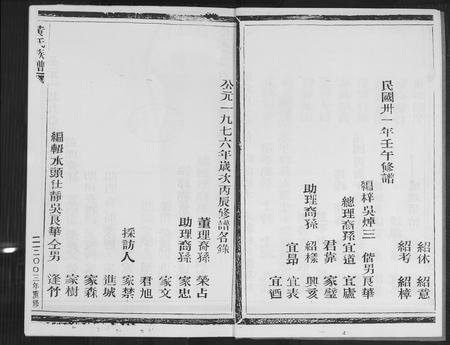 紹休 紹意
紹考 紹樟
民國卅一年壬午修譜
編梓吳焯三 偕男良華
總理裔孫宜道 宜廬
君靠 家璧
助理裔孫 紹樣 興亥
宜昂 宜表
宜酒
公元一九七六年歲次丙辰修譜名錄
董理裔孫 榮占
助理裔孫 家忠
家文
君旭
採訪人 家禁
進城
家森
家樹
編輯水頭仕靜吳良華仝男 逢竹
黃氏族譜
二二〇〇三年重修